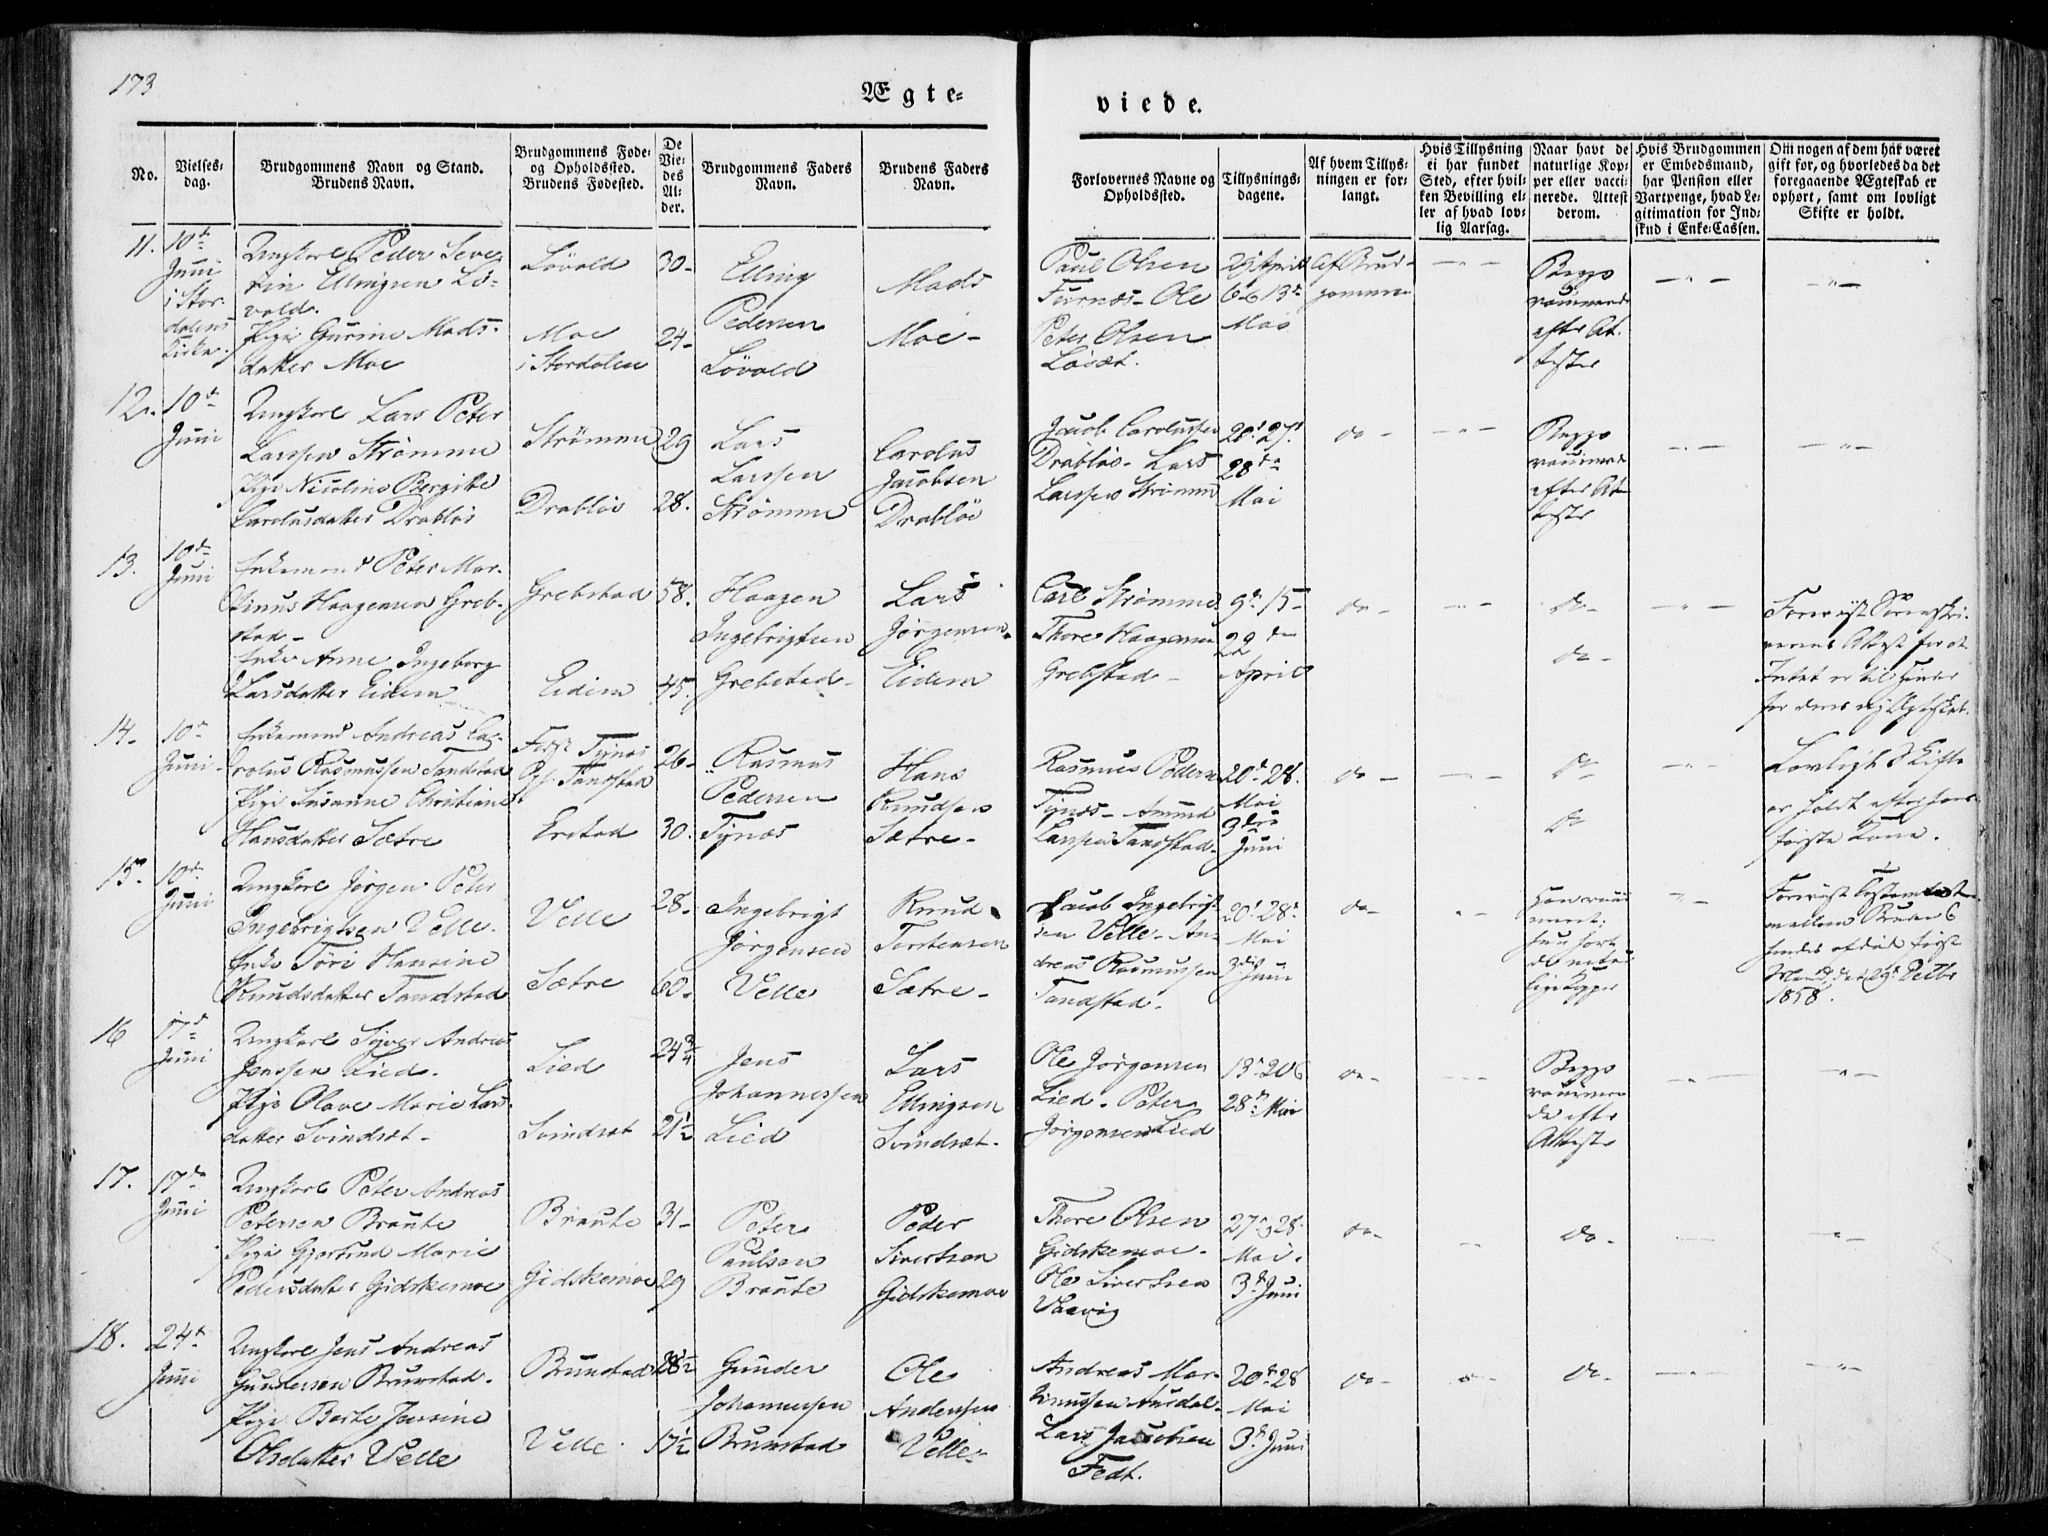 173
Ægte-
viede.
No.
Vielses-
dag.
Brudgommens Navn og Stand.
Brudens Navn.
Brudgommens Føde-
og Opholdssted.
Brudens Fødested.
De
Vie-
des
Al-
der.
Brudgommens Faders
Navn.
Brudens Faders
Navn.
Forlovernes Navne og
Opholdssted.
Tillysnings-
dagene.
Af hvem Tillys-
ningen er for-
langt.
Hvis Tillysning
ei har fundet
Sted, efter hvil-
ken Bevilling el-
ler af hvad lov-
lig Aarsag.
Naar havt de
naturlige Kop-
per eller vacci-
nerede. Attest
derom.
Hvis Brudgommen
er Embedsmand,
har Pension eller
Vartpenge, hvad Le-
gitimation for Ind-
skud i Enke-Cassen.
Om nogen af dem har været
gift før, og hvorledes da det
foregaaende Ægteskab er
ophørt, samt om lovligt
Skifte er holdt.
11.
10de
Juni
i Stor-
dalens
Kirke.
Ungkarl Peder Seve-
rin Ellingsen Lö-
vold.
Pige Gurine Mads-
datter Moe
Lövold
Moe
i Stordalen
30-
24-
Elling
Pedersen
Lövold
Mads
Moe-
Paul Olsen
Furnæs- Ole
Peter Olsen
Löset.
29 April
6 & 13de
Mai
Af Brud-
gommen
Begge
vaccinerede
efter At-
tester
12.
10de
Juni
Ungkarl Lars Peter
Larssen Strømme
Pige Nicoline Bergithe
Carolusdatter Drabløs
Strømme
Drabløs
29
28.
Lars
Larssen
Strømme
Carolus
Jacobsen
Drabløs
Jacob Carolussen
Drabløs- Lars
Larssen Strømm
20' 27'
28de
Mai
do -
Begge
vaccinerede
efter At-
tester
13.
10de
Juni
Enkemand Peter Mar-
tinus Haagensen Greb-
stad-
Enke Anne Ingeborg
Larsdatter Eidem
Grebstad
Eidem
58.
45.
Haagen
Ingebrigtsen
Grebstad-
Lars
Jørgensen
Eidem
Carl Strømme
Thore Haagensen
Grebstad-
9de 15-
22den
April
do -
do -
do -
Foreviist Sorenskri-
verens Attest for at
Intet er til Hinder
for deres Ægteskab.
14-
10de
Juni-
Enkemand Andreas Ca-
rolus Rasmussen Tandstad
Pige Susanne Christiane
Hansdatter Sætre
Født Tynæs
Op. Tandstad
Erstad
26-
30.
Rasmus
Pedersen
Tynæs
Hans
Knudsen
Sætre-
Rasmus Pedersen
Tynæs- Amund
Larssen Tandstad-
20de 28.
Mai
3die
Juni
do -
do
do
Lovligt Skifte
er holdt efter hans
første Kone.
15.
10de
Juni
Ungkarl Jörgen Peter
Ingebrigtsen Velle.
Enke Töri Hansine
Knudsdatter Tandstad
Velle
Sætre
28-
60-
Ingebrigt
Jörgensen
Velle
Knud
Torstensen
Sætre-
Jacob Ingebrigt-
sen Velle- An-
dreas Rasmussen
Tandstad-
20' 28'
Mai
3die Juni
do-
Han vacci-
neret:
hun havt
de natur-
lige Kopper
mellem Bruden &
hendes afdøde første
Mand, det 29'
1858.
16
17de
Juni
Ungkarl Siver Andreas
Jenssen Lied.
Pige Olave Marie Lars-
datter Svindset-
Lied
Svindset
24 3/4
21 1/2
Jens
Johannessen
Lied
Lars
Ellingsen
Svindset-
Ole Jørgensen
Lied- Peter
Jørgensen Lied
13' 20 &
28de Mai
do -
Begge
vaccinere-
de efter
Attester
17.
17de
Juni
Ungkarl Peter Andreas
Petersen Braute
Pige Gjertrud Marie
Pedersdatter Gidskemoe
Braute
Gidskemoe
31-
29
Peter
Paulsen
Braute
Peder
Sivertsen
Gidskemoe
Thore Olsen
Gidskemoe-
Ole Sivertsen
Vaavig
27' & 28'
Mai.
3die Juni
do-
do-
18.
24de
Juni
Ungkarl Jens Andreas
Gundersen Brunstad-
Pige Berte Jensine
Olsdatter Velle
Brunstad
Velle
28 1/2
17 1/2
Gunder
Johannessen
Brunstad
Ole
Andersen
Velle-
Andreas Mar-
tinussen Aurdal-
Lars Jacobsen
Fedt.
20' 28
Mai
3die Juni
do-
do-